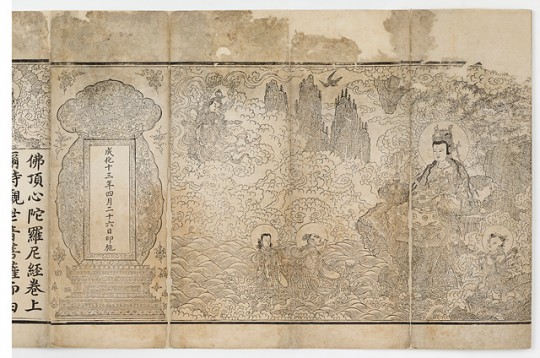 成化十三年四月二十六日印施
佛頂心陀羅尼經卷上
爾時觀世音菩薩而白